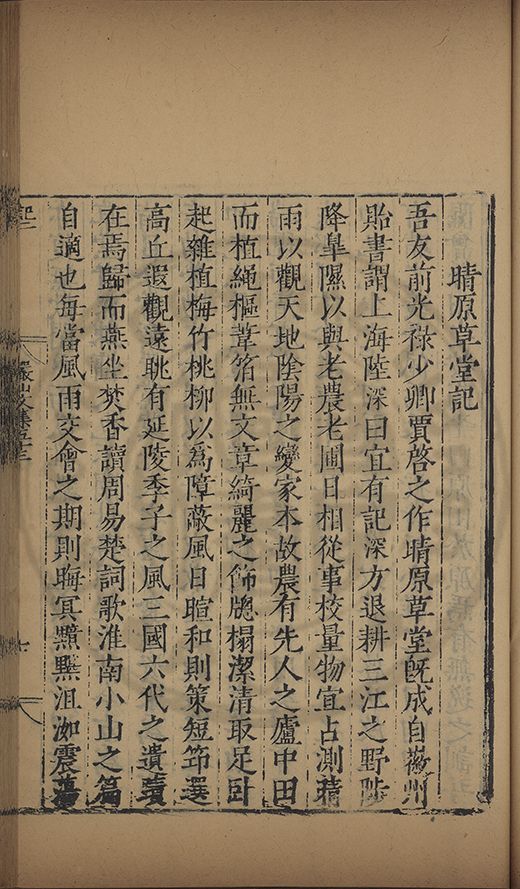 晴原草堂記
吾友前光祿少卿賈啓之作晴原草堂旣成自徽州
貽書謂上海陸深曰宜有記深方退耕三江之野陟
降臯隰以與老農老圃日相從事校量物宜占測晴
雨以觀天地陰陽之變家本故農有先人之廬中田
而植繩樞葦箔無文章綺麗之飾牕榻潔清取足卧
起雜植梅竹桃柳以爲障蔽風日暄和則策短筇選
高丘遐觀遠眺有延陵季子之風三國六代之遺蹟
在焉歸而燕坐焚香讀周易楚詞歌淮南小山之篇
自適也每當風雨交會之期則晦冥黯黮沮洳震蕩
儼山文集卷五十三
七